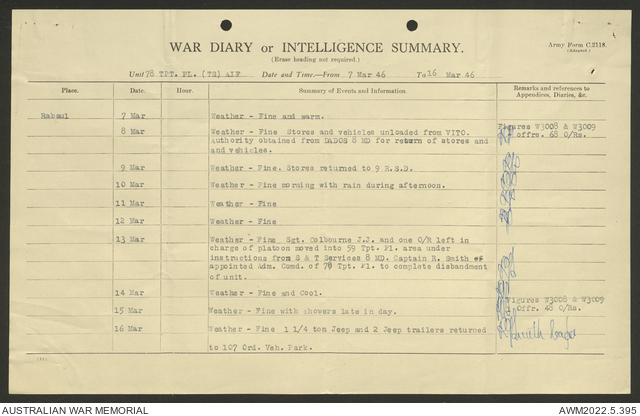 Army Form C.2118.
(Adapted.)
WAR DIARY or INTELLIGENCE SUMMARY.
(Erase heading not required.)
Unit 78 TPT. PL. (TE) AIF Date and Time.—From 7 Mar 46 To 16 Mar 46
Place. Date. Hour. Summary of Events and Information Remarks and references to
Appendices, Diaries, &c.
Rabaul 7 Mar Weather - Fine and warm.
8 Mar Weather - Fine Stores and vehicles unloaded from VITO. Figures W3008 & W3009
Authority obtained from DADOS 8 MD for return of stores and offrs. 68 O/Rs.
and vehicles.
9 Mar Weather - Fine. Stores returned to 9 R.S.D.
10 Mar Weather - Fine morning with rain during afternoon.
11 Mar Weather - Fine
12 Mar Weather - Fine
13 Mar Weather - Fine Sgt. Colbourne J.J. and one O/R left in
charge of platoon moved into 59 Tpt. Pl. area under
instructions from S & T Services 8 MD. Captain R. Smith
appointed Adm. Comd. of 78 Tpt. Pl. to complete disbandment
of unit.
14 Mar Weather - Fine and Cool. Figures W3008 & W3009
Offr. 48 O/Rs.
15 Mar Weather - Fine with showers late in day.
16 Mar Weather - Fine 1 1/4 ton Jeep and 2 Jeep trailers returned
to 107 Ord. Veh. Park.
AUSTRALIAN WAR MEMORIAL AWM2022.5.395